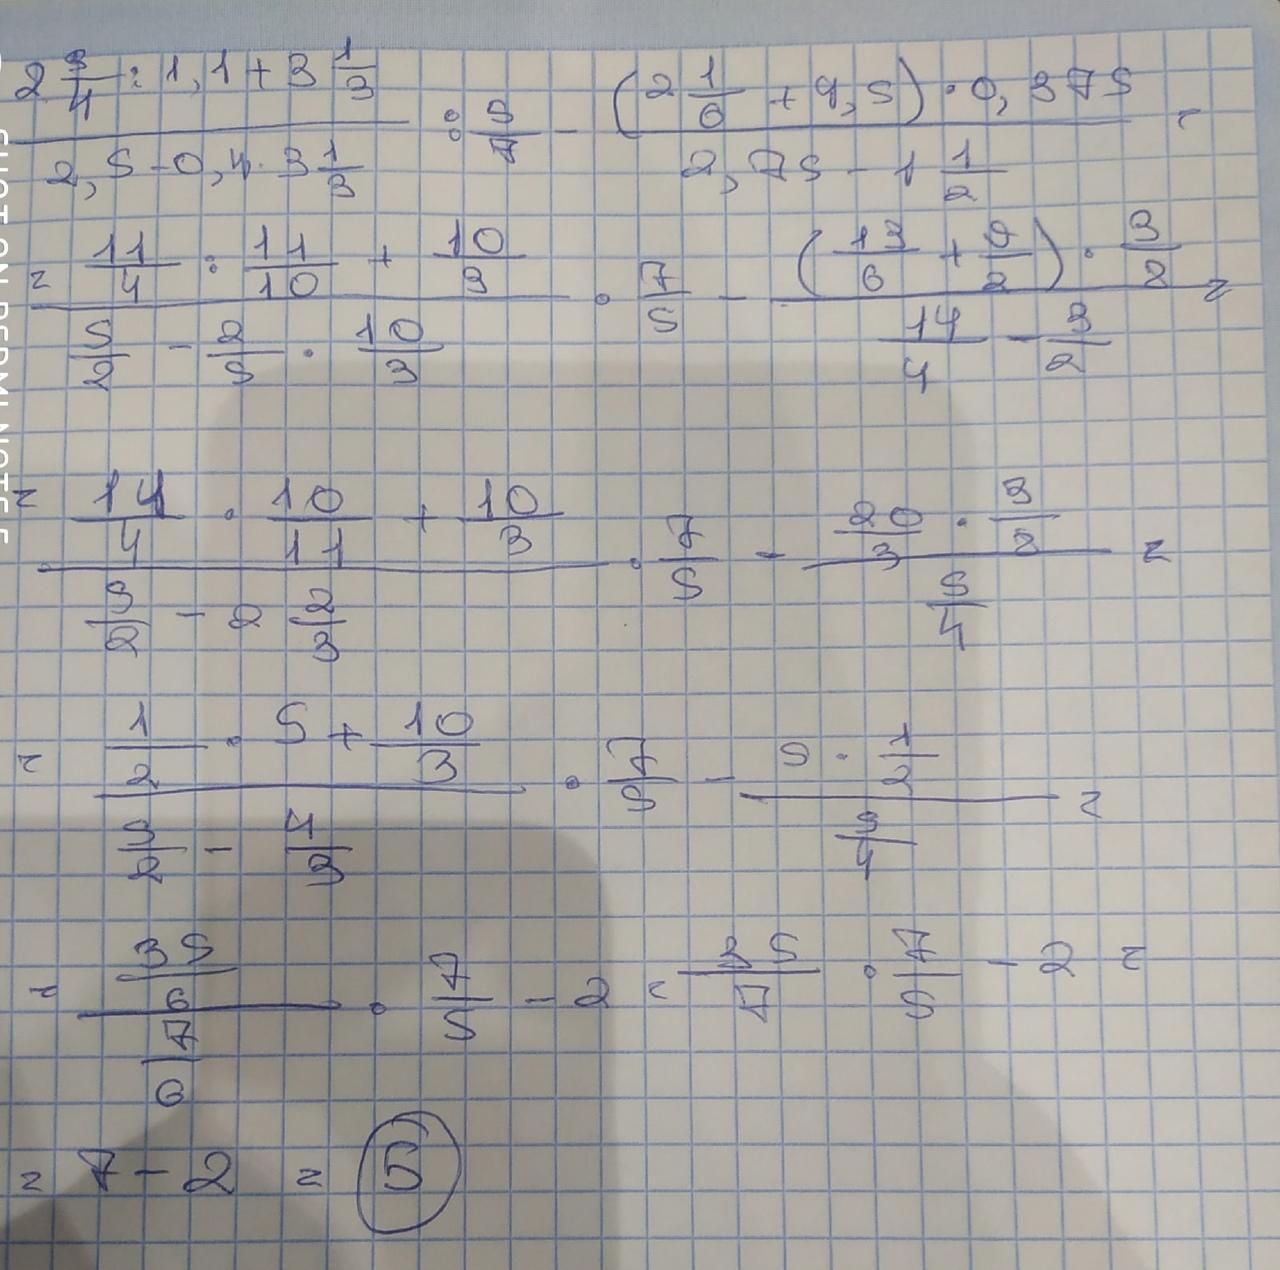 (2 3/4 : 1,1 + 3 1/3) / (2,5 - 0,4 · 3 1/3) : 5/7 - ((2 1/6 + 4,5) · 0,375) / (2,75 - 1 1/2) =
= (11/4 : 11/10 + 10/3) / (5/2 - 2/5 · 10/3) · 7/5 - ((13/6 + 9/2) · 3/8) / (14/4 - 3/2) =
= (11/4 · 10/11 + 10/3) / (5/2 - 2 2/3) · 7/5 - (20/3 · 3/8) / (5/4) =
= (1/2 · 5 + 10/3) / (5/2 - 4/3) · 7/5 - (5 · 1/2) / (5/4) =
= (35/6) / (7/6) · 7/5 - 2 = 35/7 · 7/5 - 2 =
= 7 - 2 = 5
SHOT ON REDMI NOTE 5